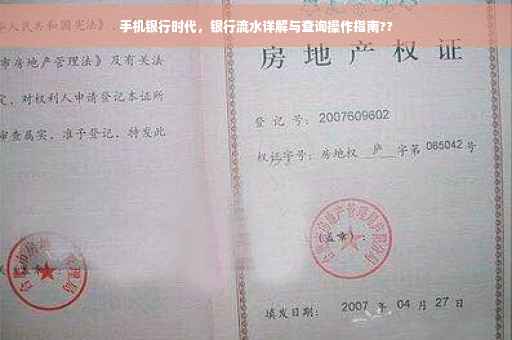 手机银行时代，银行流水详解与查询操作指南??
人民共和国宪法》及
市房地产管理法》及有关法
定，对权利人申请登记本证所
审查属实，准予登记，特发此
房地产权证
登记号：2007609602
权证字号：房地权 庐 字第 085042 号
(盖章)：
填发日期： 2007 年 04 月 27 日